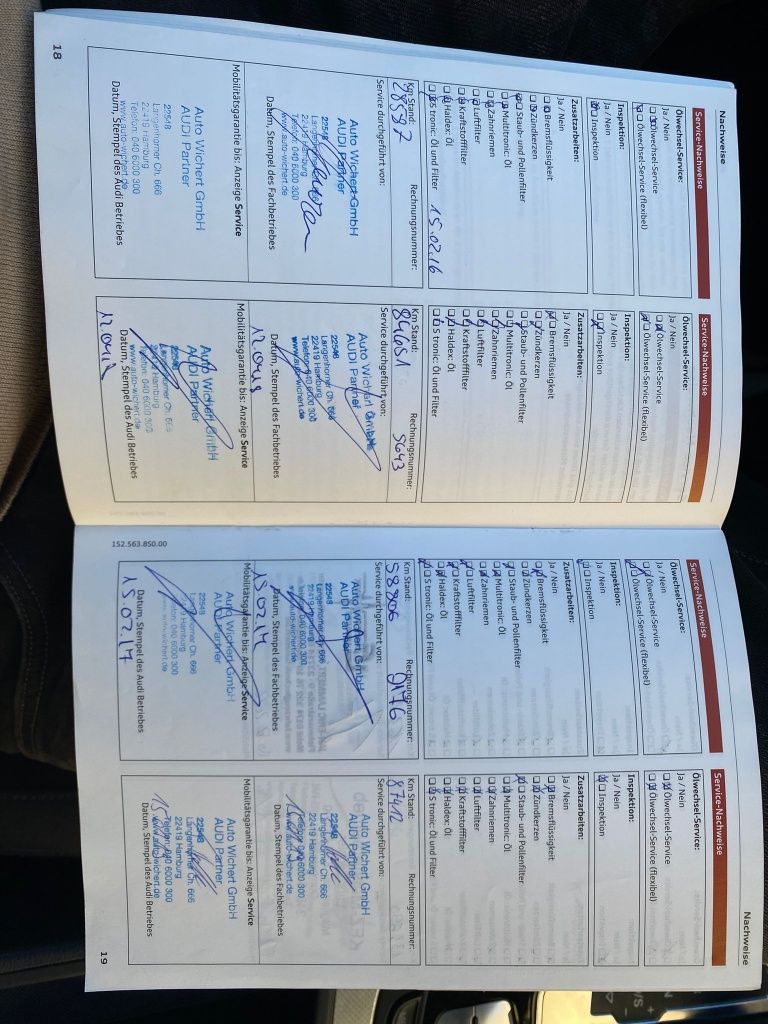 Nachweise
Service-Nachweise
Ölwechsel-Service:
Ja / Nein
Ölwechsel-Service
Ölwechsel-Service (flexibel)
Inspektion:
Ja / Nein
Inspektion
Zusatzarbeiten:
Ja / Nein
Bremsflüssigkeit
Zündkerzen
Staub- und Pollenfilter
Multitronic: Öl
Zahnriemen
Luftfilter
Kraftstofffilter
Haldex: Öl
S tronic: Öl und Filter
15.02.16
Km Stand: Rechnungsnummer:
28597
Service durchgeführt von:
Auto Wichert GmbH
AUDI Partner
22548
Langenhorner Ch. 666
22419 Hamburg
Telefon: 040 6000 300
www.auto-wichert.de
Datum, Stempel des Fachbetriebes
Mobilitätsgarantie bis: Anzeige Service
Auto Wichert GmbH
AUDI Partner
22548
Langenhorner Ch. 666
22419 Hamburg
Telefon: 040 6000 300
www.auto-wichert.de
Datum, Stempel des Audi Betriebes
18
Service-Nachweise
Ölwechsel-Service:
Ja / Nein
Ölwechsel-Service
Ölwechsel-Service (flexibel)
Inspektion:
Ja / Nein
Inspektion
Zusatzarbeiten:
Ja / Nein
Bremsflüssigkeit
Zündkerzen
Staub- und Pollenfilter
Multitronic: Öl
Zahnriemen
Luftfilter
Kraftstofffilter
Haldex: Öl
S tronic: Öl und Filter
Km Stand: Rechnungsnummer:
5643
Service durchgeführt von:
Auto Wichert GmbH
AUDI Partner
Langenhorner Ch. 666
22419 Hamburg
Telefon: 040 6000 300
www.auto-wichert.de
Datum, Stempel des Fachbetriebes
Mobilitätsgarantie bis: Anzeige Service
Auto Wichert GmbH
AUDI Partner
Hamburg
Telefon: 040 6000 300
www.auto-wichert.de
Datum, Stempel des Audi Betriebes
152.563.850.00
Service-Nachweise
Ölwechsel-Service:
Ja / Nein
Ölwechsel-Service
Ölwechsel-Service (flexibel)
Inspektion:
Ja / Nein
Inspektion
Zusatzarbeiten:
Ja / Nein
Bremsflüssigkeit
Zündkerzen
Staub- und Pollenfilter
Multitronic: Öl
Zahnriemen
Luftfilter
Kraftstofffilter
Haldex: Öl
S tronic: Öl und Filter
Km Stand: Rechnungsnummer:
9176
Service durchgeführt von:
Auto Wichert GmbH
AUDI Partner
22548
Langenhorner Ch. 666
22419 Hamburg
Telefon: 040 6000 300
www.auto-wichert.de
Datum, Stempel des Fachbetriebes
Mobilitätsgarantie bis: Anzeige Service
Auto Wichert GmbH
AUDI Partner
22548
Langenhorner Ch. 666
Hamburg
Telefon: 040 6000 300
www.auto-wichert.de
Datum, Stempel des Audi Betriebes
15.07.17
Nachweise
Service-Nachweise
Ölwechsel-Service:
Ja / Nein
Ölwechsel-Service
Ölwechsel-Service (flexibel)
Inspektion:
Ja / Nein
Inspektion
Zusatzarbeiten:
Ja / Nein
Bremsflüssigkeit
Zündkerzen
Staub- und Pollenfilter
Multitronic: Öl
Zahnriemen
Luftfilter
Kraftstofffilter
Haldex: Öl
S tronic: Öl und Filter
Km Stand: Rechnungsnummer:
87412
Service durchgeführt von:
Auto Wichert GmbH
AUDI Partner
22548
Langenhorner Ch. 666
22419 Hamburg
Telefon: 040 6000 300
www.auto-wichert.de
Datum, Stempel des Fachbetriebes
Mobilitätsgarantie bis: Anzeige Service
Auto Wichert GmbH
AUDI Partner
22548
Langenhorner Ch. 666
22419 Hamburg
Telefon: 040 6000 300
www.auto-wichert.de
Datum, Stempel des Audi Betriebes
19